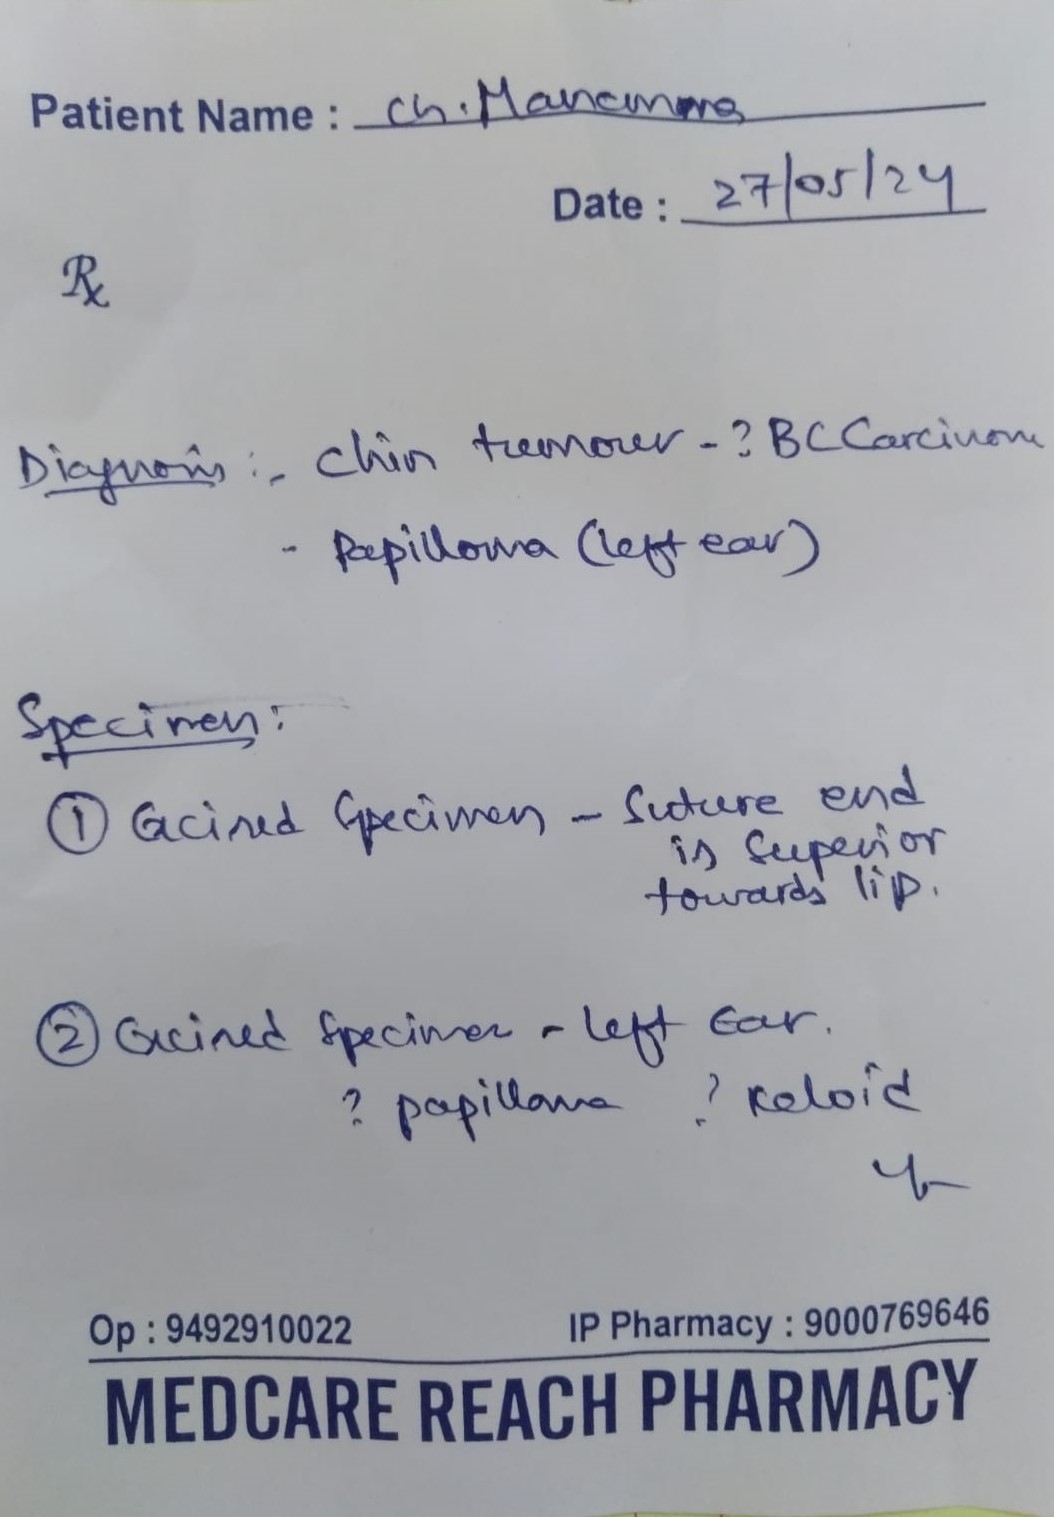 Patient Name : Ch.
Date : 27/05/24
Rx
Diagnosis :- Chin tumour - ? BC Carcinoma
- Papilloma (left ear)
Specimen :
① Excised Specimen - Suture end
is Superior
towards lip.
② Excised Specimen - left Ear.
? papilloma ? Keloid
Op : 9492910022 IP Pharmacy : 9000769646
MEDCARE REACH PHARMACY